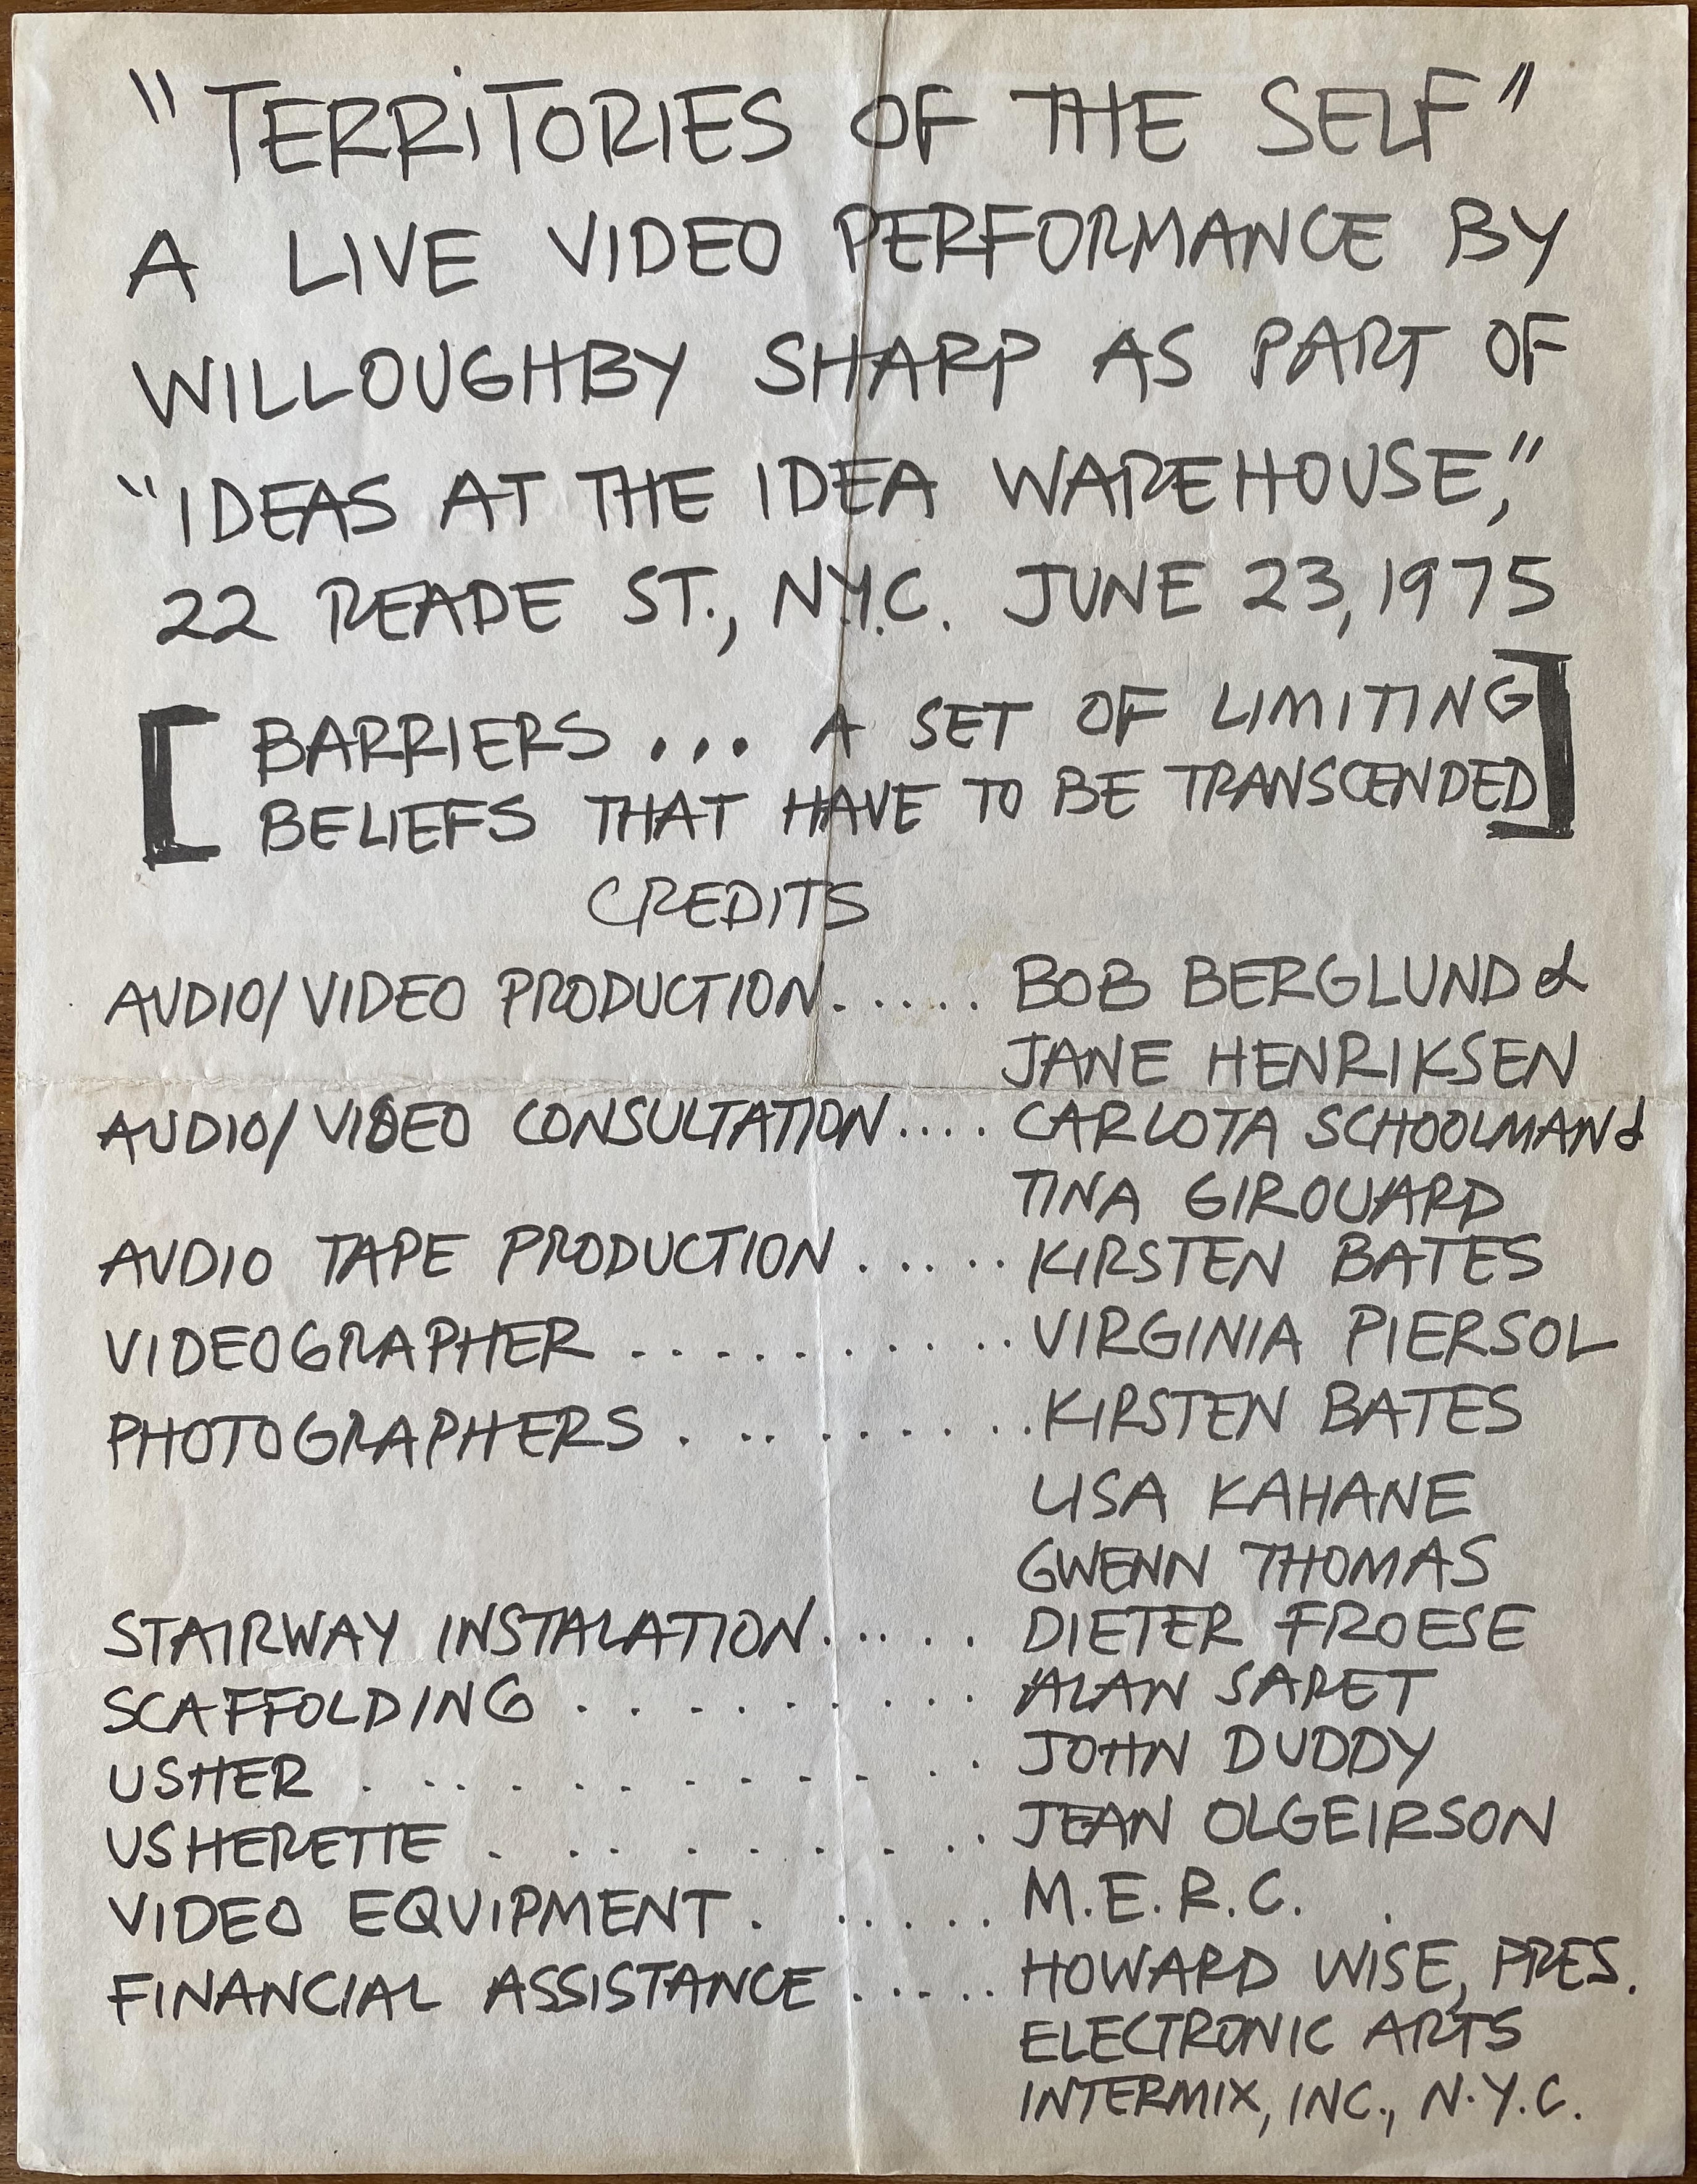 "TERRiTORIES OF THE SELF"
A LIVE VIDEO PERFORMANCE BY
WILLOUGHBY SHARP AS PART OF
"IDEAS AT THE IDEA WAREHOUSE,"
22 READE ST., N.Y.C. JUNE 23, 1975
[BARRIERS ... A SET OF LIMITING
BELIEFS THAT HAVE TO BE TRANSCENDED]
CREDITS
AUDIO/VIDEO PRODUCTION...... BOB BERGLUND &
JANE HENRIKSEN
AUDIO/VIDEO CONSULTATION.... CARLOTA SCHOOLMAN &
TINA GIROUARD
AUDIO TAPE PRODUCTION ..... KIRSTEN BATES
VIDEOGRAPHER ........... VIRGINIA PIERSOL
PHOTOGRAPHERS .......... KIRSTEN BATES
LISA KAHANE
GWENN THOMAS
STAIRWAY INSTALATION..... DIETER FROESE
SCAFFOLDING ......... ALAN SARET
USHER ........... JOHN DUDDY
USHERETTE ......... JEAN OLGEIRSON
VIDEO EQUIPMENT ...... M.E.R.C.
FINANCIAL ASSISTANCE ..... HOWARD WISE, PRES.
ELECTRONIC ARTS
INTERMIX, INC., N.Y.C.